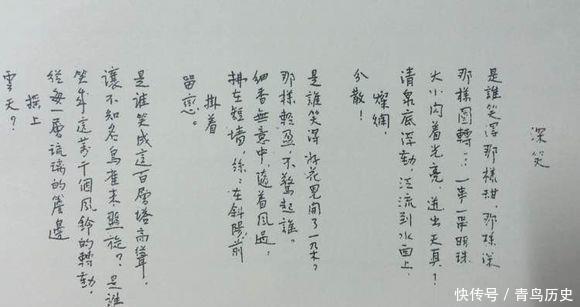 深笑
是誰笑得那樣甜，那樣深
那樣圓轉？一串一串明珠
大小閃着光亮，迸出天真！
清泉底浮動，泛流到水面上，
燦爛，
分散！
是誰笑得好花兒開了一朵？
那樣輕盈，不驚起誰。
細香無意中，隨着風過，
拂在短墻，絲絲在斜陽前
掛着
留戀。
是誰笑成這百層塔高聳，
讓不知名鳥雀來盤旋？是誰
笑成這萬千個風鈴的轉動，
從每一層琉璃的簷邊
搖上
雲天？
快传号/青鸟历史